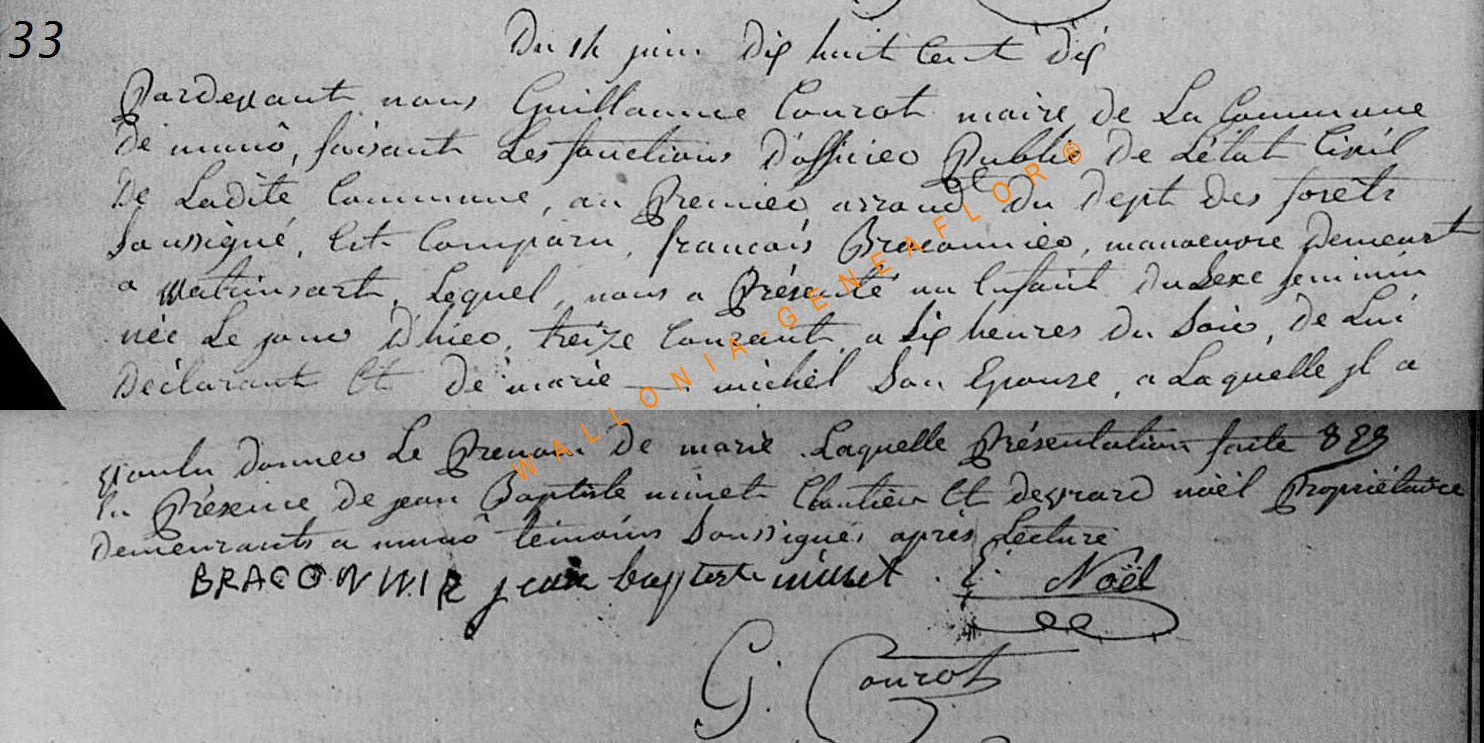 33
Du 14 juin Dix huit Cent Dix
Pardevant nous Guillaume Courot maire de La Commune
De munô, faisant Les fonctions D'officier Public De L'état Civil
De Ladite Commune, au Premier arrond du Dept Des forêts
Soussigné, Est Comparu, francois Braconnier, manoeuvre Demeurt
a Watrinsart, Lequel nous a Présenté un Enfant Du Sexe feminin
née Le jour D'hier, treize Courant, a Six heures Du Soir, De Lui
Déclarant Et De marie michel Son Epouse, a Laquelle jl a
voulu Donner Le Prenom De marie. Laquelle Présentation faite
En Présence De jean Baptiste minet Et noël Propriétaire
Demeurants a munô témoins Soussignés après Lecture
BRACONNIR jean baptiste minet . E. Noël
G. Courot
WALLONIA-GENEAFLOR®